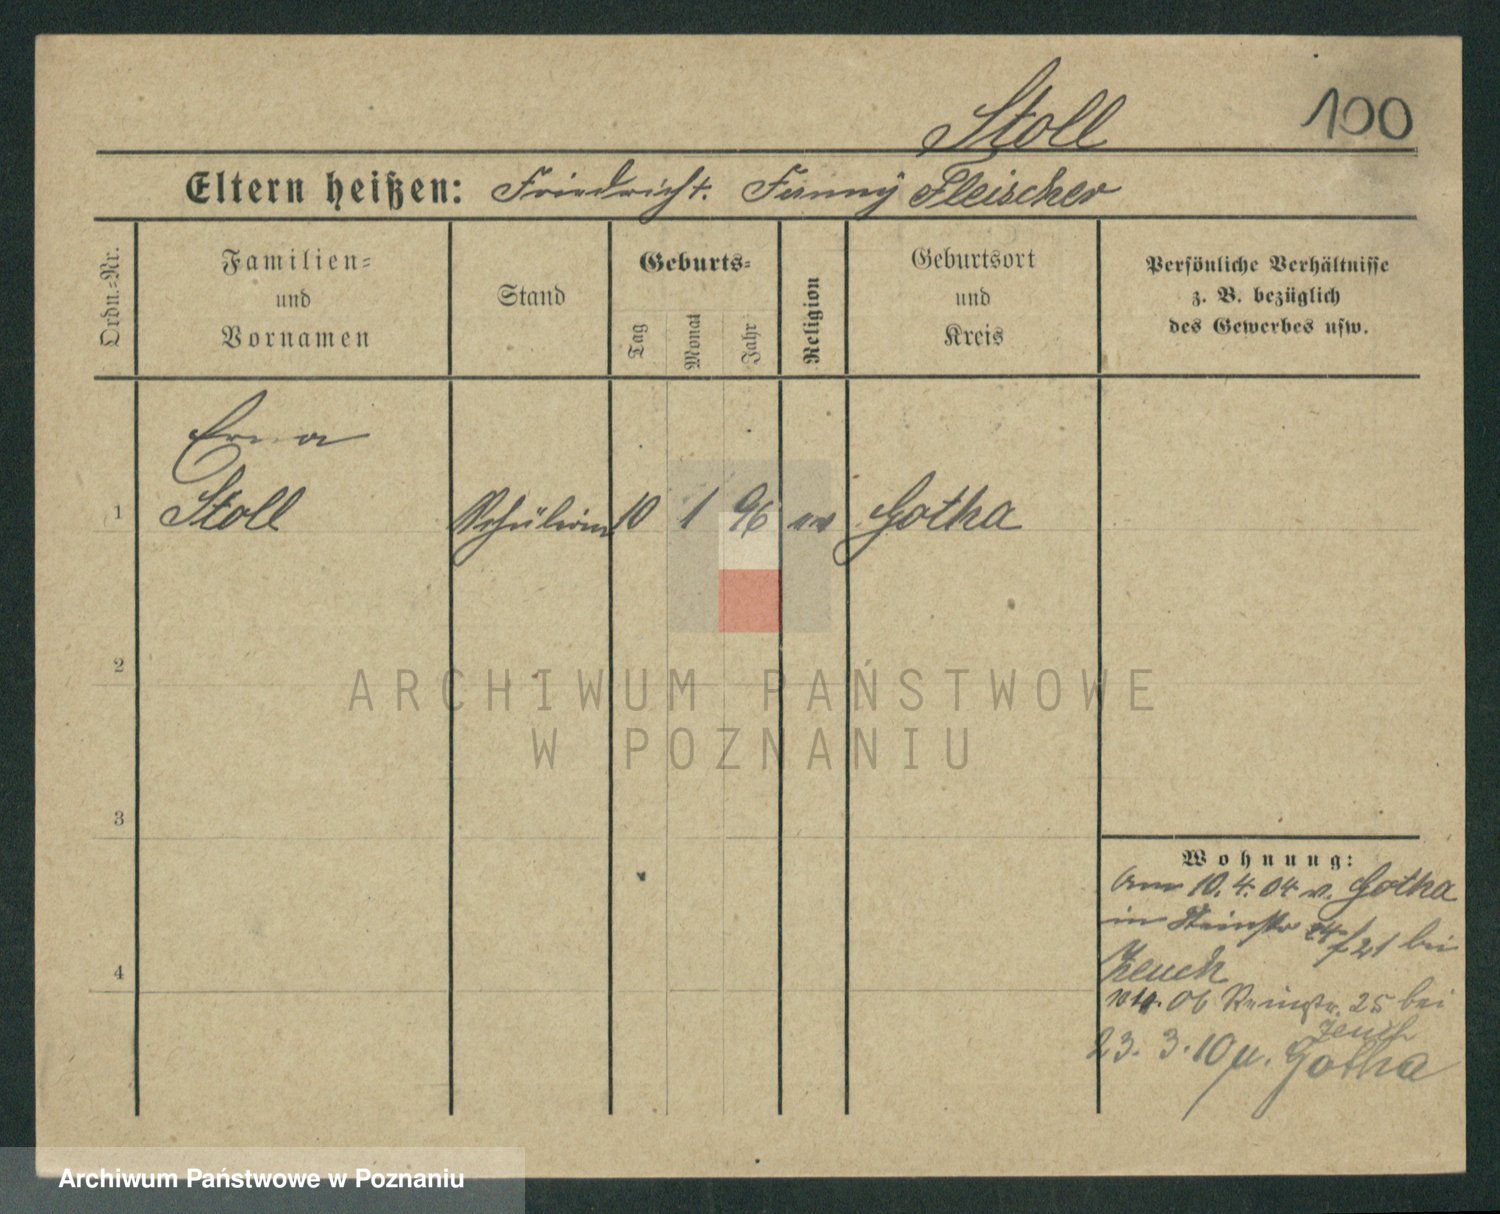 Stoll
100
Eltern heißen: Friedrich. Fanny Fleischer
Ordn.=Nr.
Familien=
und
Vornamen
Stand
Geburts=
Tag
Monat
Jahr
Religion
Geburtsort
und
Kreis
Persönliche Verhältnisse
z. B. bezüglich
des Gewerbes usw.
Erna
1 Stoll Schülerin 10 1 96 ev Gotha
2
3
4
ARCHIWUM PAŃSTWOWE
W POZNANIU
Wohnung:
Am 10. 4. 04 v. Gotha
in Steinstr /21 bei
Zeuch
06 Steinstr. 25 bei
Zeuch
23. 3. 10 n. Gotha
Archiwum Państwowe w Poznaniu